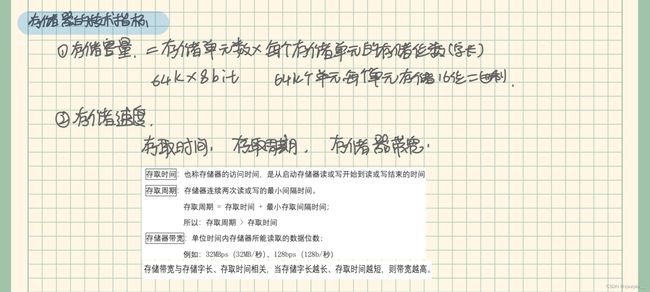 存储器的技术指标
①存储容量. = 存储单元数 × 每个存储单元的存储位数(字长)
64K×8bit 64K个单元,每个单元存储16位二进制.
②存储速度.
存取时间, 存取周期, 存储器带宽.
存取时间:也称存储器的访问时间,是从启动存储器读或写开始到读或写结束的时间
存取周期:存储器连续两次读或写的最小间隔时间。
存取周期 = 存取时间 + 最小存取间隔时间;
所以:存取周期 > 存取时间
存储器带宽:单位时间内存储器所能读取的数据位数;
例如:32MBps (32MB/秒)、128bps (128b/秒)
存储带宽与存储字长、存取时间相关,当存储字长越长、存取时间越短,则带宽越高。